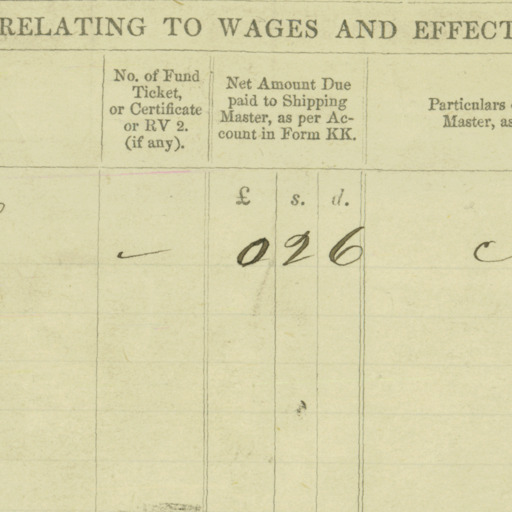 RELATING TO WAGES AND EFFECT
No. of Fund
Ticket,
or Certificate
or RV 2.
(if any).
Net Amount Due
paid to Shipping
Master, as per Ac-
count in Form KK.
Particulars
Master, as
£ s. d.
– 0 2 6